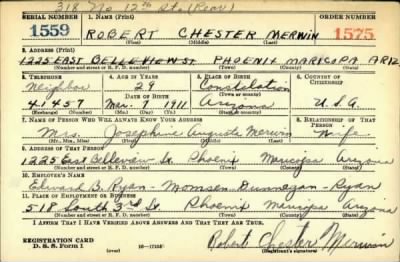 318 No 12th St. (Rear)
SERIAL NUMBER 1. NAME (Print) ORDER NUMBER
1559 ROBERT CHESTER MERWIN 1575
(First) (Middle) (Last)
2. ADDRESS (Print)
1225 EAST BELLEVIEW ST. PHOENIX MARICOPA ARIZ
(Number and street or R. F. D. number) (Town) (County) (State)
3. TELEPHONE 4. AGE IN YEARS 5. PLACE OF BIRTH 6. COUNTRY OF CITIZENSHIP
Neighbor 29 Constelation
DATE OF BIRTH (Town or county)
41457 Mar. 7 1911 Arizona U.S.A.
(Exchange) (Number) (Mo.) (Day) (Yr.) (State or country)
7. NAME OF PERSON WHO WILL ALWAYS KNOW YOUR ADDRESS 8. RELATIONSHIP OF THAT PERSON
Mrs. Josephine Auguste Merwin Wife
(Mr., Mrs., Miss) (First) (Middle) (Last)
9. ADDRESS OF THAT PERSON
1225 East Belleview St. Phoenix Maricopa Arizona
(Number and street or R. F. D. number) (Town) (County) (State)
10. EMPLOYER'S NAME
Edward B. Ryan - Momsen Dunnegan - Ryan
11. PLACE OF EMPLOYMENT OR BUSINESS
518 South 3rd St. Phoenix Maricopa Arizona
(Number and street or R. F. D. number) (Town) (County) (State)
I AFFIRM THAT I HAVE VERIFIED ABOVE ANSWERS AND THAT THEY ARE TRUE.
REGISTRATION CARD
D. S. S. Form 1 (over) Robert Chester Merwin
(Registrant's signature)